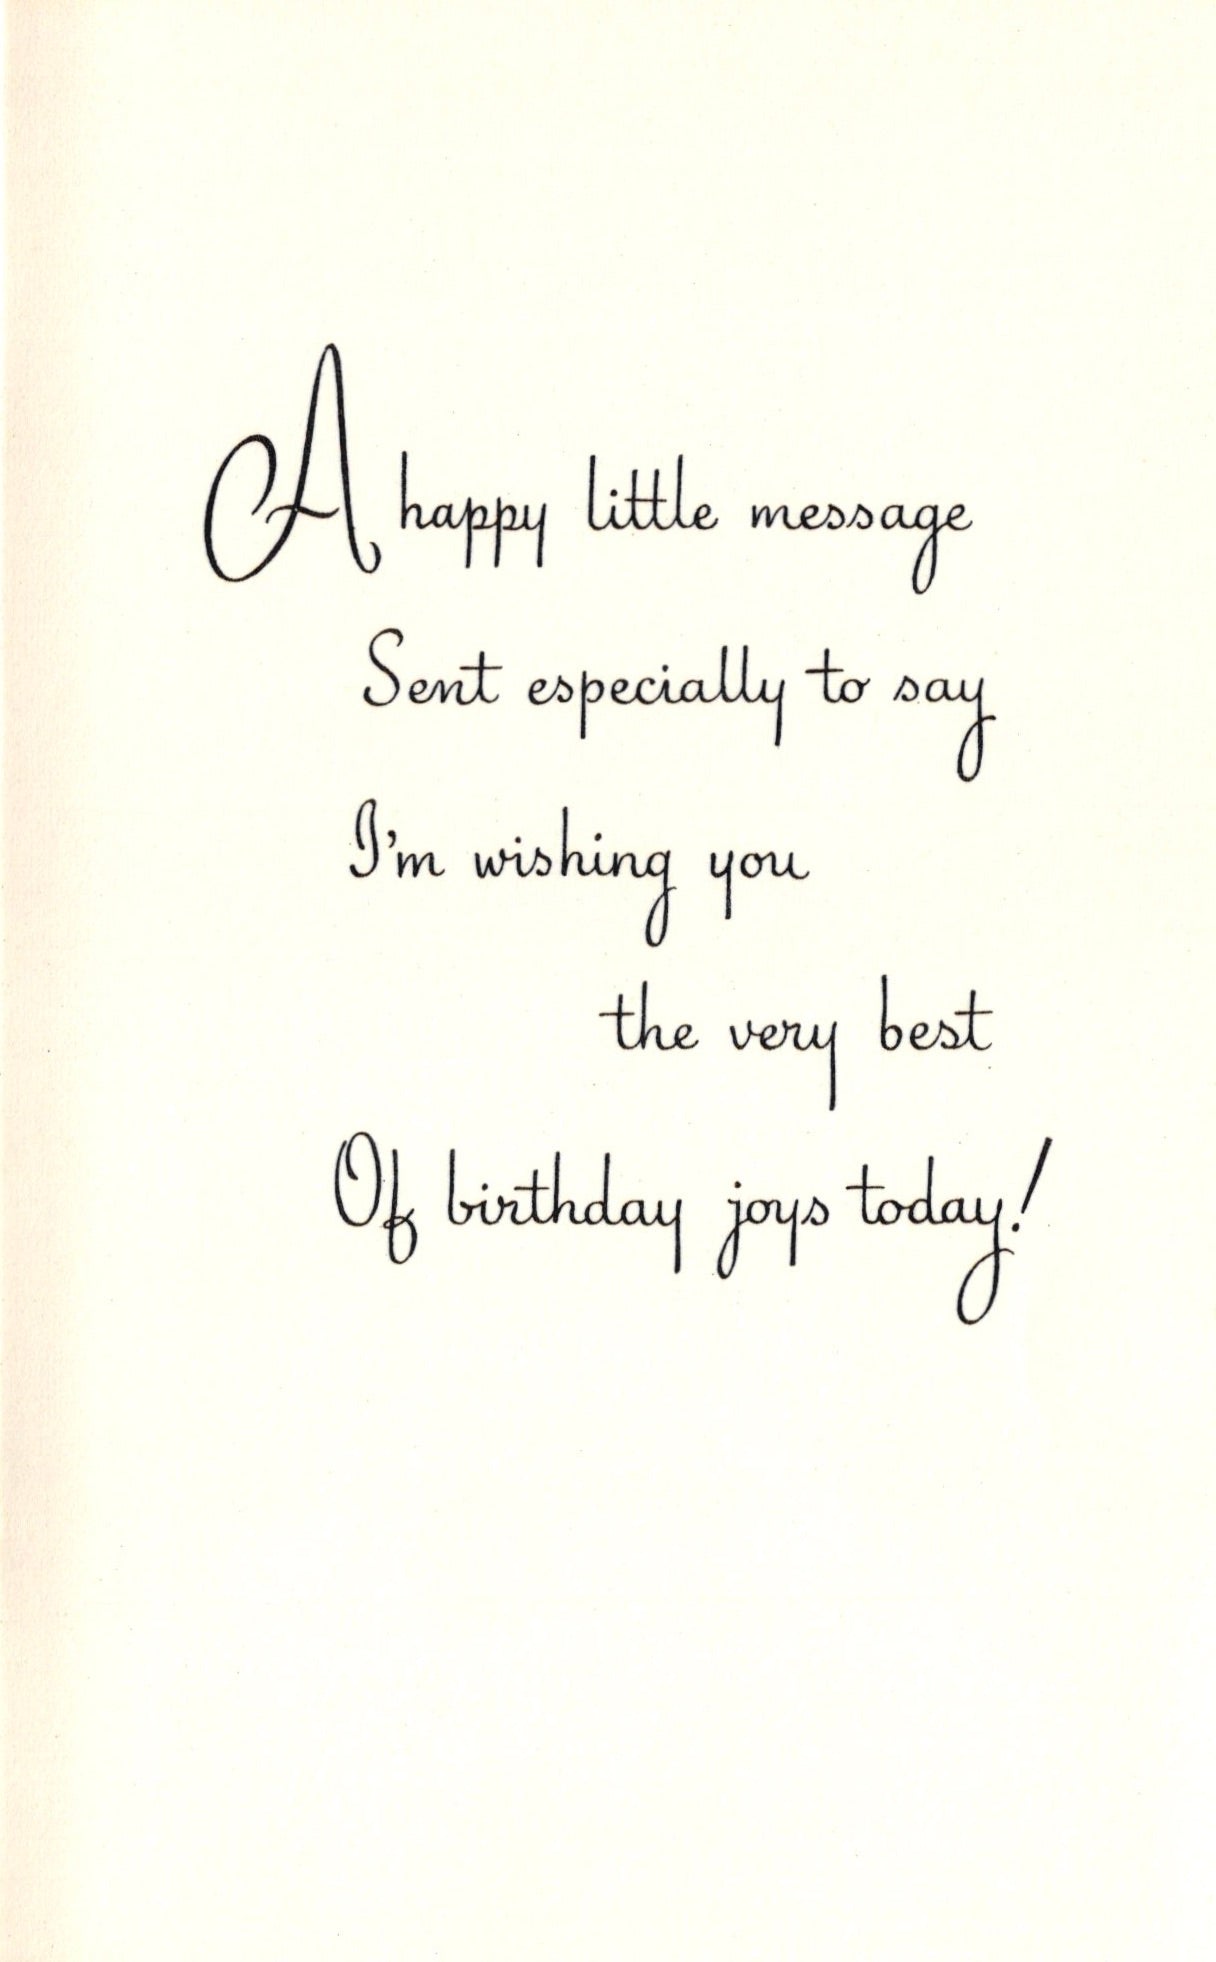 A happy little message
Sent especially to say
I'm wishing you
the very best
Of birthday joys today!